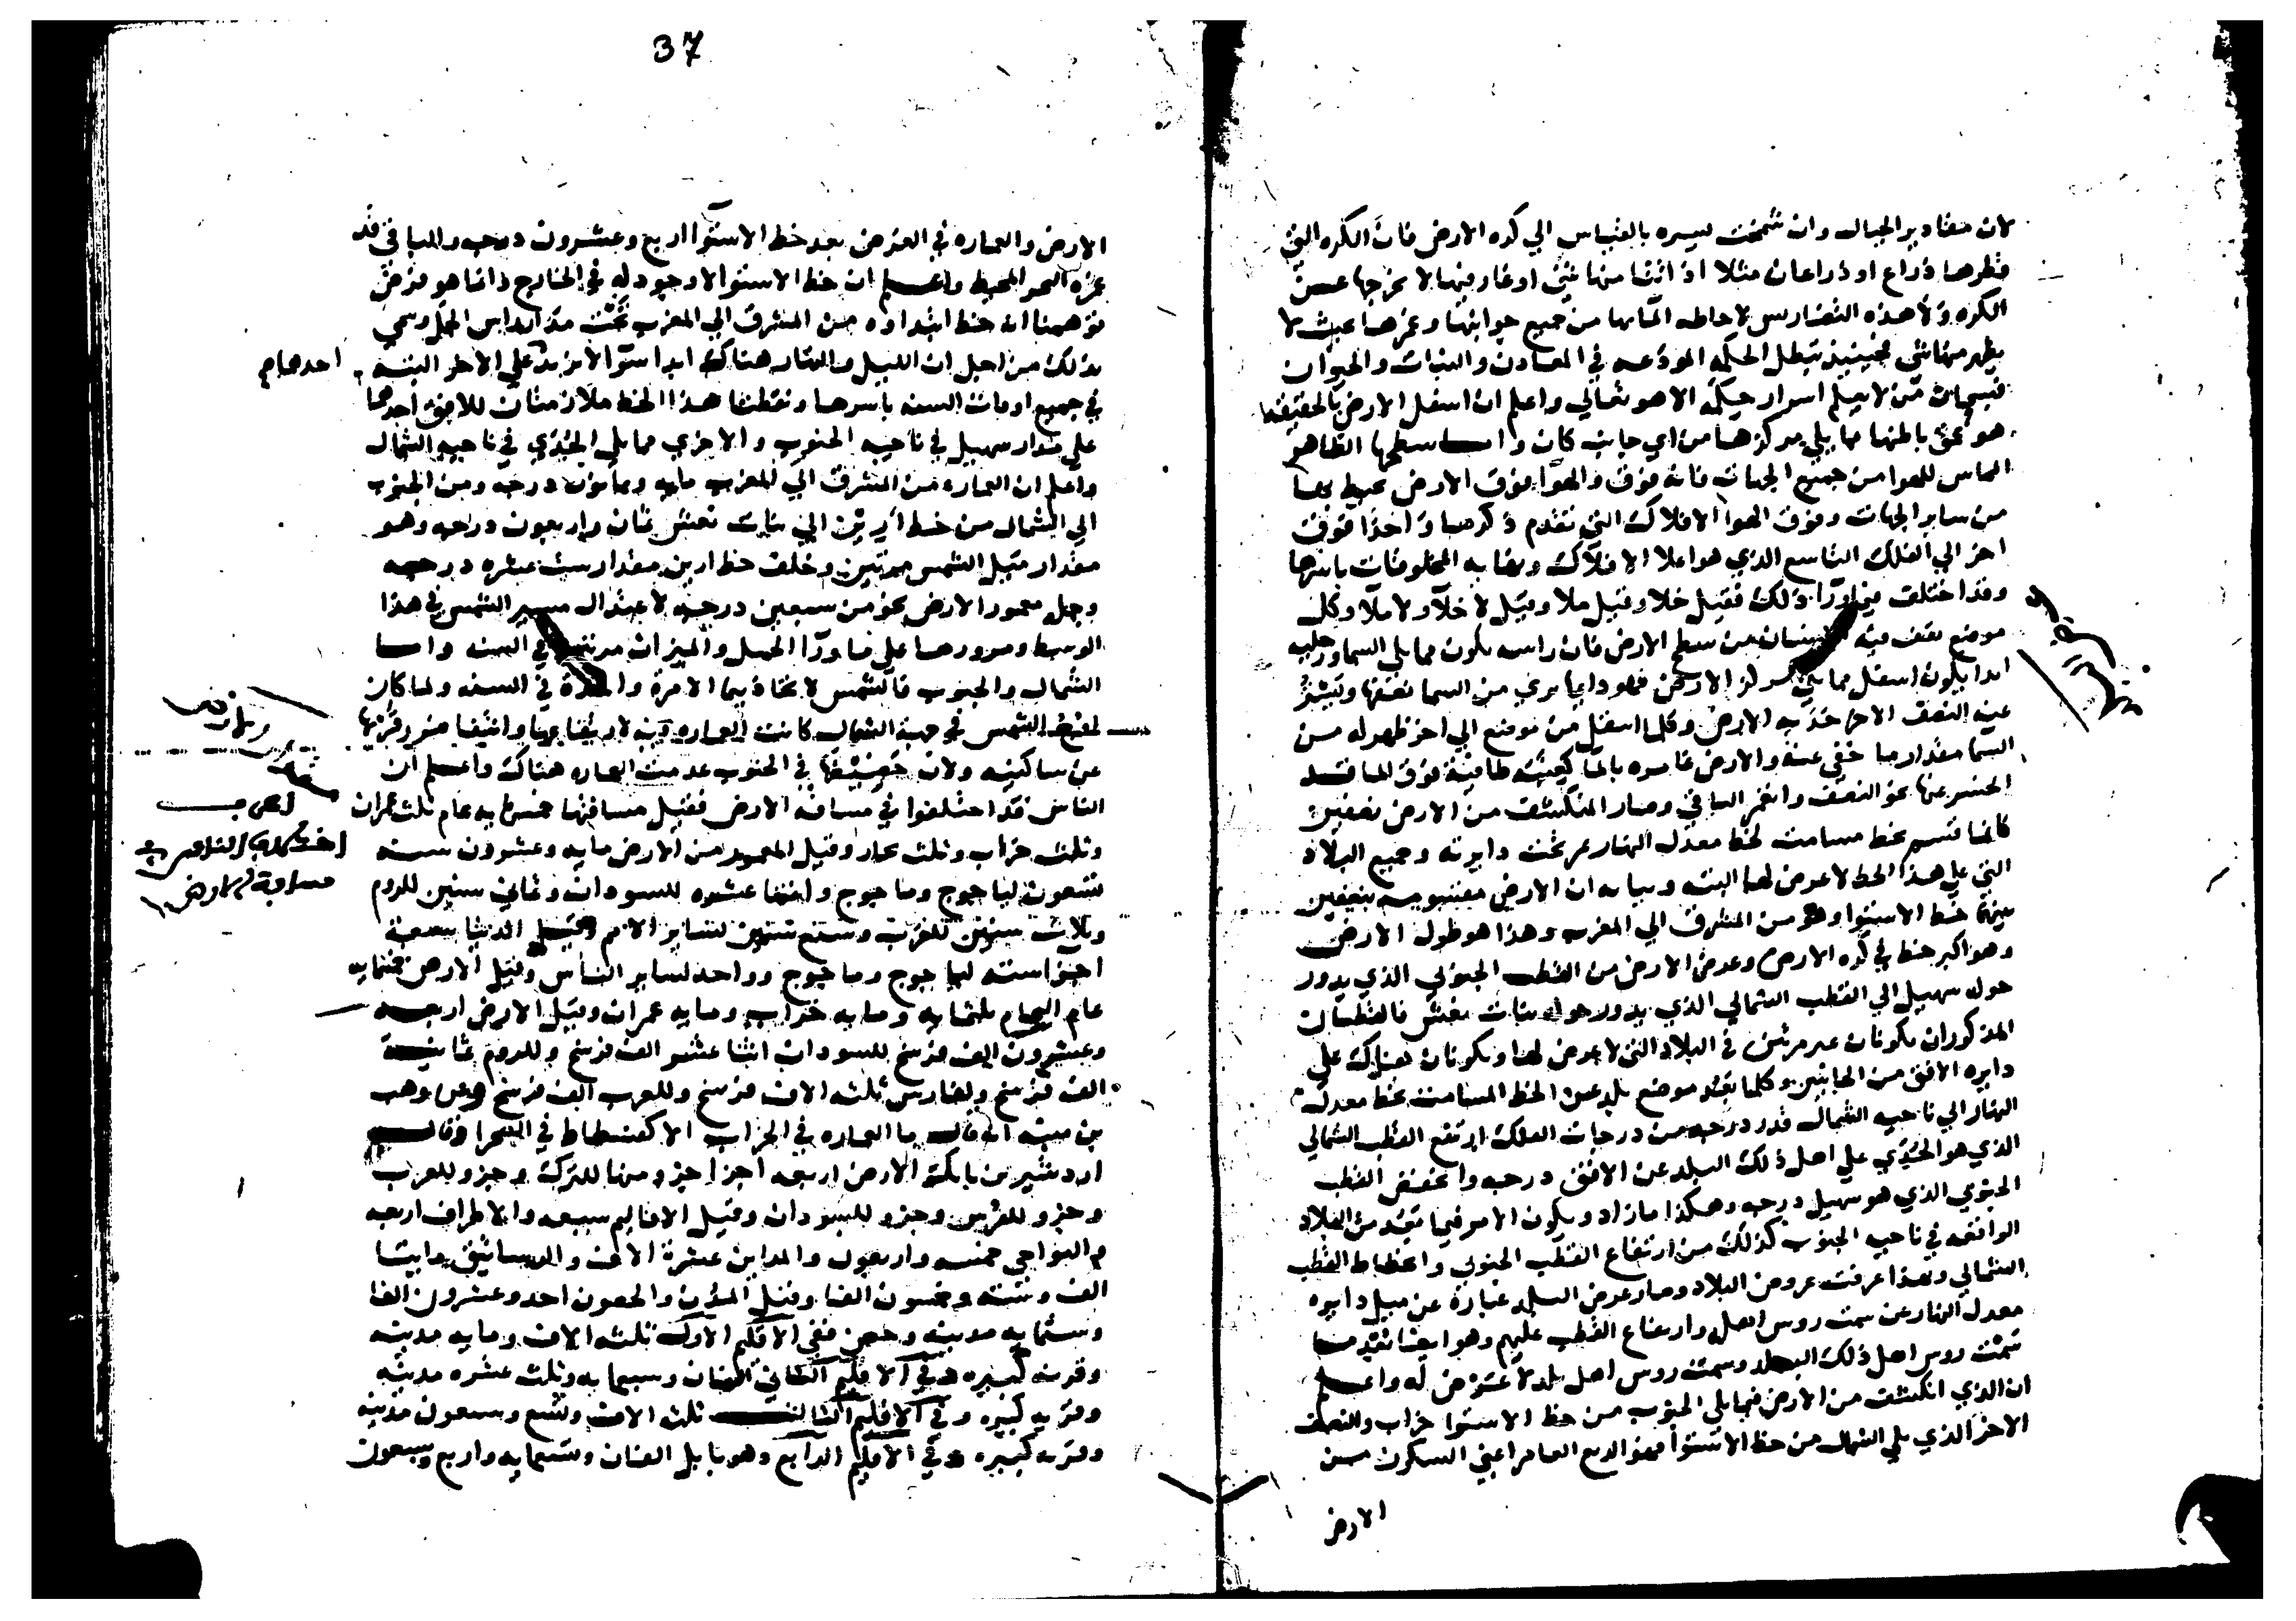 لان مقادير الجبال وان شمخت يسيره بالقياس الي كره الارض فان الكره التي
قطرها ذراع او ذراعان مثلا اذ انتا منها شي او غار فيها لا يخرجها عن
الكره ولا هذه التضاريس لاحاطه الما بها من جميع جوانبها وغمرها بحيث لا
يظهر منها شي فحينيذ تبطل الحكمه المودعه في المعادن والنبات والحيوان
فسبحان من لا يعلم اسرار حيكمه الا هو تعالي واعلم ان اسفل الارض بالحقيقه
هو عمق باطنها مما يلي مركزها من اي جانب كان واما سطحها الظاهر
الماس للهوا من جميع الجهات فانه فوق والهوا فوق الارض محيط بها
من ساير الجهات وفوق الهوا الافلاك التي تقدم ذكرها واحدا فوق
اخر الي الفلك التاسع الذي هو اعلا الافلاك ونهايه المخلوقات باسرها
وقد اختلف فيما ورا ذلك فقيل خلا وقيل ملا وقيل لا خلا ولا ملا وكل
موضع يقف فيه الانسان من سطح الارض فان راسه يكون مما يلي السما ورجليه
ابدا يكون اسفل مما يلي مركز الارض فهو دايما يري من السما نصفها ويستر
عنه النصف الاخر حدبه الارض وكلما انتقل من موضع الي اخر ظهر له من
السما مقدار ما خفي عنه والارض غامره بالما كعنبه طافيه فوق الما قد
انحسر عنها نحو النصف وانغمر الباقي وصار المنكشف من الارض نصفين
كانما قسم بخط مسامت لخط معدل النهار يمر تحت دايرته وجميع البلاد
التي علي هذا الخط لا عرض لها البته وبيانه ان الارض مقسومه بنصفين
بينهما خط الاستوا وهو من المشرق الي المغرب وهذا هو طول الارض
وهو اكبر خط في كره الارض وعرض الارض من القطب الجنوبي الذي يدور
حوله سهيل الي القطب الشمالي الذي يدور حوله بنات نعش فالقطبان
المذكوران يكونان غير مرئين في البلاد التي لا عرض لها ويكونان هناك علي
دايره الافق من الجانبين وكلما بعد موضع بلد عن الخط المسامت لخط معدل
النهار الي ناحيه الشمال قدر درجه من درجات الفلك ارتفع القطب الشمالي
الذي هو الجدي علي اهل ذلك البلد عن الافق درجه وانخفض القطب
الجنوبي الذي هو سهيل درجه وهكذا ما زاد ويكون الامر فيما بعد من البلاد
الواقعه في ناحيه الجنوب كذلك من ارتفاع القطب الجنوبي وانحطاط القطب
الشمالي وبهذا عرفت عروض البلاد وصار عرض البلد عبارة عن ميل دايره
معدل النهار عن سمت روس اهله وارتفاع القطب عليهم وهو ايضا بعد ما
سمت روس اهل ذلك البلد وسمت روس اهل بلد لا عرض له واعلم
ان الذي انكشف من الارض فيما يلي الجنوب من خط الاستوا خراب والنصف
الاخر الذي يلي الشمال من خط الاستوا فهو الربع العامر اعني المسكون من
الارض
37
الارض والعماره في العرض بعد خط الاستوا اربع وعشرون درجه والباقي قد
غمره البحر المحيط واعلم ان خط الاستوا لا وجود له في الخارج وانما هو فرض
توهمنا انه خط ابتداوه من المشرق الي المغرب تحت مدار راس الحمل وسمي
بذلك من اجل ان الليل والنهار هناك ابدا سوا لا يزيد علي الاخر البته
احدهما
في جميع اوقات السنه باسرها ونقطتا هذا الخط ملازمتان للافق احدهما
علي مدار سهيل في ناحيه الجنوب والاخري مما يلي الجدي في ناحيه الشمال
واعلم ان العماره من المشرق الي المغرب مايه وثمانون درجه ومن الجنوب
الي الشمال من خط ارين الي بنات نعش ثمان واربعون درجه وهو
مقدار ميل الشمس مرتين وخلف خط ارين مقدار ست عشره درجه
وجمل معمور الارض نحو من سبعين درجه لاعتدال مسير الشمس في هذا
الوسط ومرورها علي ما ورا الحمل والميزان مرتين في السنه واما
الشمال والجنوب فالشمس لا تحاذيها الا مرة واحدة في السنه ولما كان
الشمس في جهة الشمال كانت العماره فيه لارتفاعها وانتفا ضرر قربها
عن ساكنيه ولان حضيضها في الجنوب عدمت العماره هناك واعلم ان
الناس قد اختلفوا في مسافه الارض فقيل مسافتها خمس مايه عام ثلث عمران
وثلث خراب وثلث بحار وقيل المعمور من الارض مايه وعشرون سنه
تسعون ليا جوج وما جوج واثنتا عشره للسودان وثماني سنين للروم
وثلاث سنين للعرب وسبع سنين لساير الامم وقيل الدنيا سبعة
اجزا سته ليا جوج وما جوج وواحد لساير الناس وقيل الارض خمسمايه
عام البحار ثلثمايه ومايه خراب ومايه عمران وقيل الارض اربعه
وعشرون الف فرسخ للسودان اثنا عشر الف فرسخ وللروم ثمانيه
الف فرسخ ولفارس ثلثه الاف فرسخ وللعرب الف فرسخ وعن وهب
بن منبه انه قال ما العماره في الخراب الا كفسطاط في الصحرا وقال
اردشير بن بابك الارض اربعه اجزا جزو منها للترك وجزو للعرب
وجزو للفرس وجزو للسودان وقيل الاقاليم سبعه والاطراف اربعه
والنواحي خمسه واربعون والمداين عشرة الاف والرساتيق مايتا
الف وسته وخمسون الفا وقيل المدن والحصون احد وعشرون الفا
وستمايه مدينه وحصن ففي الاقليم الاول ثلثه الاف ومايه مدينه
وقريه كبيره وفي الاقليم الثاني الفان وسبعمايه وثلث عشره مدينه
وقريه كبيره وفي الاقليم الثالث ثلثه الاف وتسع وسبعون مدينه
وقريه كبيره وفي الاقليم الرابع وهو بابل الفان وتسعمايه واربع وسبعون